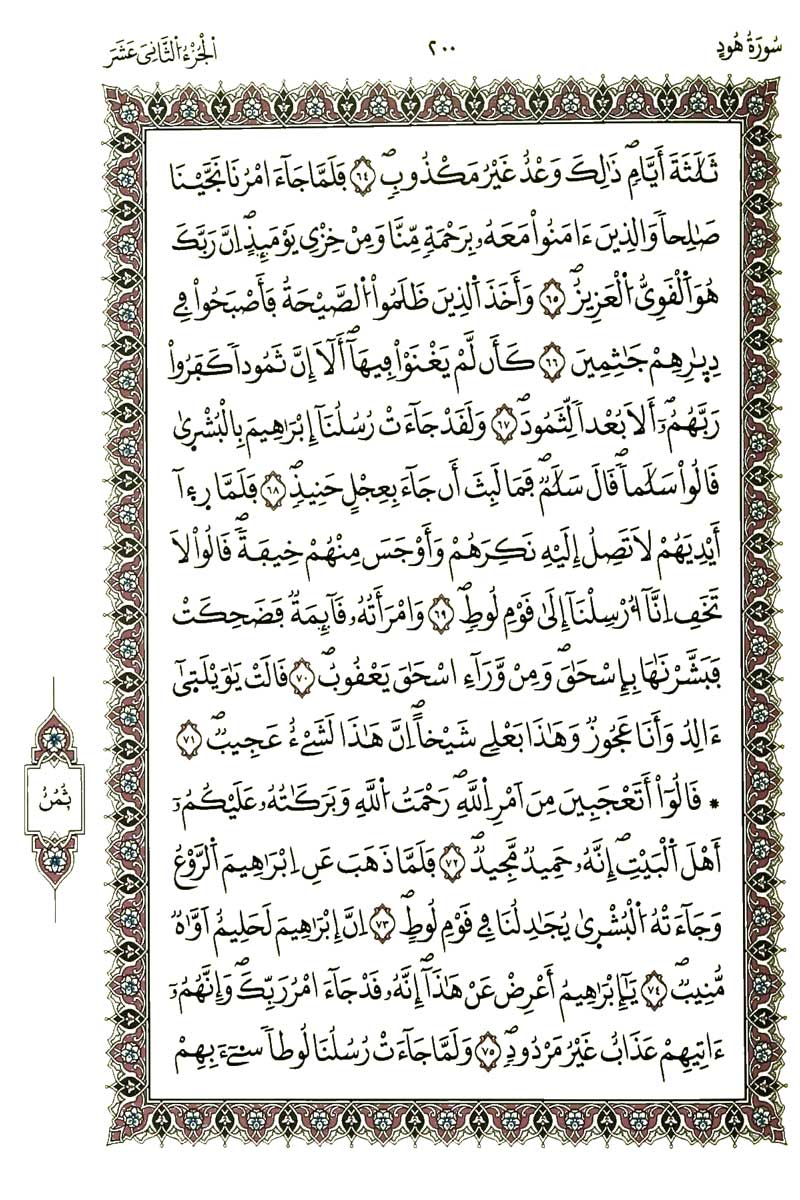 سُورَةُ هُودٍ
٢٠٠
اَلْجُزْءُ اُلثَّانِىَ عَشَرَ
ثَلَٰثَةَ أَيَّامٖۖ ذَٰلِكَ وَعْدٌ غَيْرُ مَكْذُوبٖۖ ٦٤ فَلَمَّا جَآءَ امْرُنَا نَجَّيْنَا
صَٰلِحاٗ وَالذِينَ ءَامَنُواْ مَعَهُۥ بِرَحْمَةٖ مِّنَّا وَمِنْ خِزْيِ يَوْمَئِذٍۖ اِنَّ رَبَّكَ
هُوَ اَلْقَوِيُّ اُلْعَزِيزُۖ ٦٥ وَأَخَذَ اَلذِينَ ظَلَمُواْ اُلصَّيْحَةُ فَأَصْبَحُواْ فِے
دِيٰ۪رِهِمْ جَٰثِمِينَ ٦٦ كَأَن لَّمْ يَغْنَوْاْ فِيهَآۖ أَلَآ إِنَّ ثَمُوداٗ كَفَرُواْ
رَبَّهُمُۥٓۖ أَلَا بُعْداٗ لِّثَمُودَۖ ٦٧ وَلَقَدْ جَآءَتْ رُسُلُنَآ إِبْرَٰهِيمَ بِالْبُشْر۪يٰ
قَالُواْ سَلَٰماٗۖ قَالَ سَلَٰمٞۖ فَمَا لَبِثَ أَن جَآءَ بِعِجْلٍ حَنِيذٖۖ ٦٨ فَلَمَّا ر۪ء۪آ
أَيْدِيَهُمْ لَا تَصِلُ إِلَيْهِ نَكِرَهُمْ وَأَوْجَسَ مِنْهُمْ خِيفَةٗۖ قَالُواْ لَا
تَخَفِ اِنَّآ أُرْسِلْنَآ إِلَيٰ قَوْمِ لُوطٖۖ ٦٩ وَامْرَأَتُهُۥ قَآئِمَةٞ فَضَحِكَتْ
فَبَشَّرْنَٰهَا بِإِسْحَٰقَۖ وَمِنْ وَّرَآءِ اسْحَٰقَ يَعْقُوبُۖ ٧٠ قَالَتْ يَٰوَيْلَت۪يٰٓ
ءَالِدُ وَأَنَا عَجُوزٞ وَهَٰذَا بَعْلِے شَيْخاًۖ اِنَّ هَٰذَا لَشَےْءٌ عَجِيبٞۖ ٧١
* قَالُوٓاْ أَتَعْجَبِينَ مِنَ اَمْرِ اِللَّهِۖ رَحْمَتُ اُللَّهِ وَبَرَكَٰتُهُۥ عَلَيْكُمُۥٓ
أَهْلَ اَلْبَيْتِۖ إِنَّهُۥ حَمِيدٞ مَّجِيدٞۖ ٧٢ فَلَمَّا ذَهَبَ عَنِ اِبْرَٰهِيمَ اَلرَّوْعُ
وَجَآءَتْهُ اُلْبُشْر۪يٰ يُجَٰدِلُنَا فِے قَوْمِ لُوطٍۖ ٧٣ اِنَّ إِبْرَٰهِيمَ لَحَلِيمٌ اَوَّٰهٞ
مُّنِيبٞۖ ٧٤ يَٰٓإِبْرَٰهِيمُ أَعْرِضْ عَنْ هَٰذَآۖ إِنَّهُۥ قَدْ جَآءَ امْرُ رَبِّكَۖ وَإِنَّهُمُۥٓ
ءَاتِيهِمْ عَذَابٌ غَيْرُ مَرْدُودٖۖ ٧٥ وَلَمَّا جَآءَتْ رُسُلُنَا لُوطاٗ سِےٓءَ بِهِمْ
ثُمُنُ